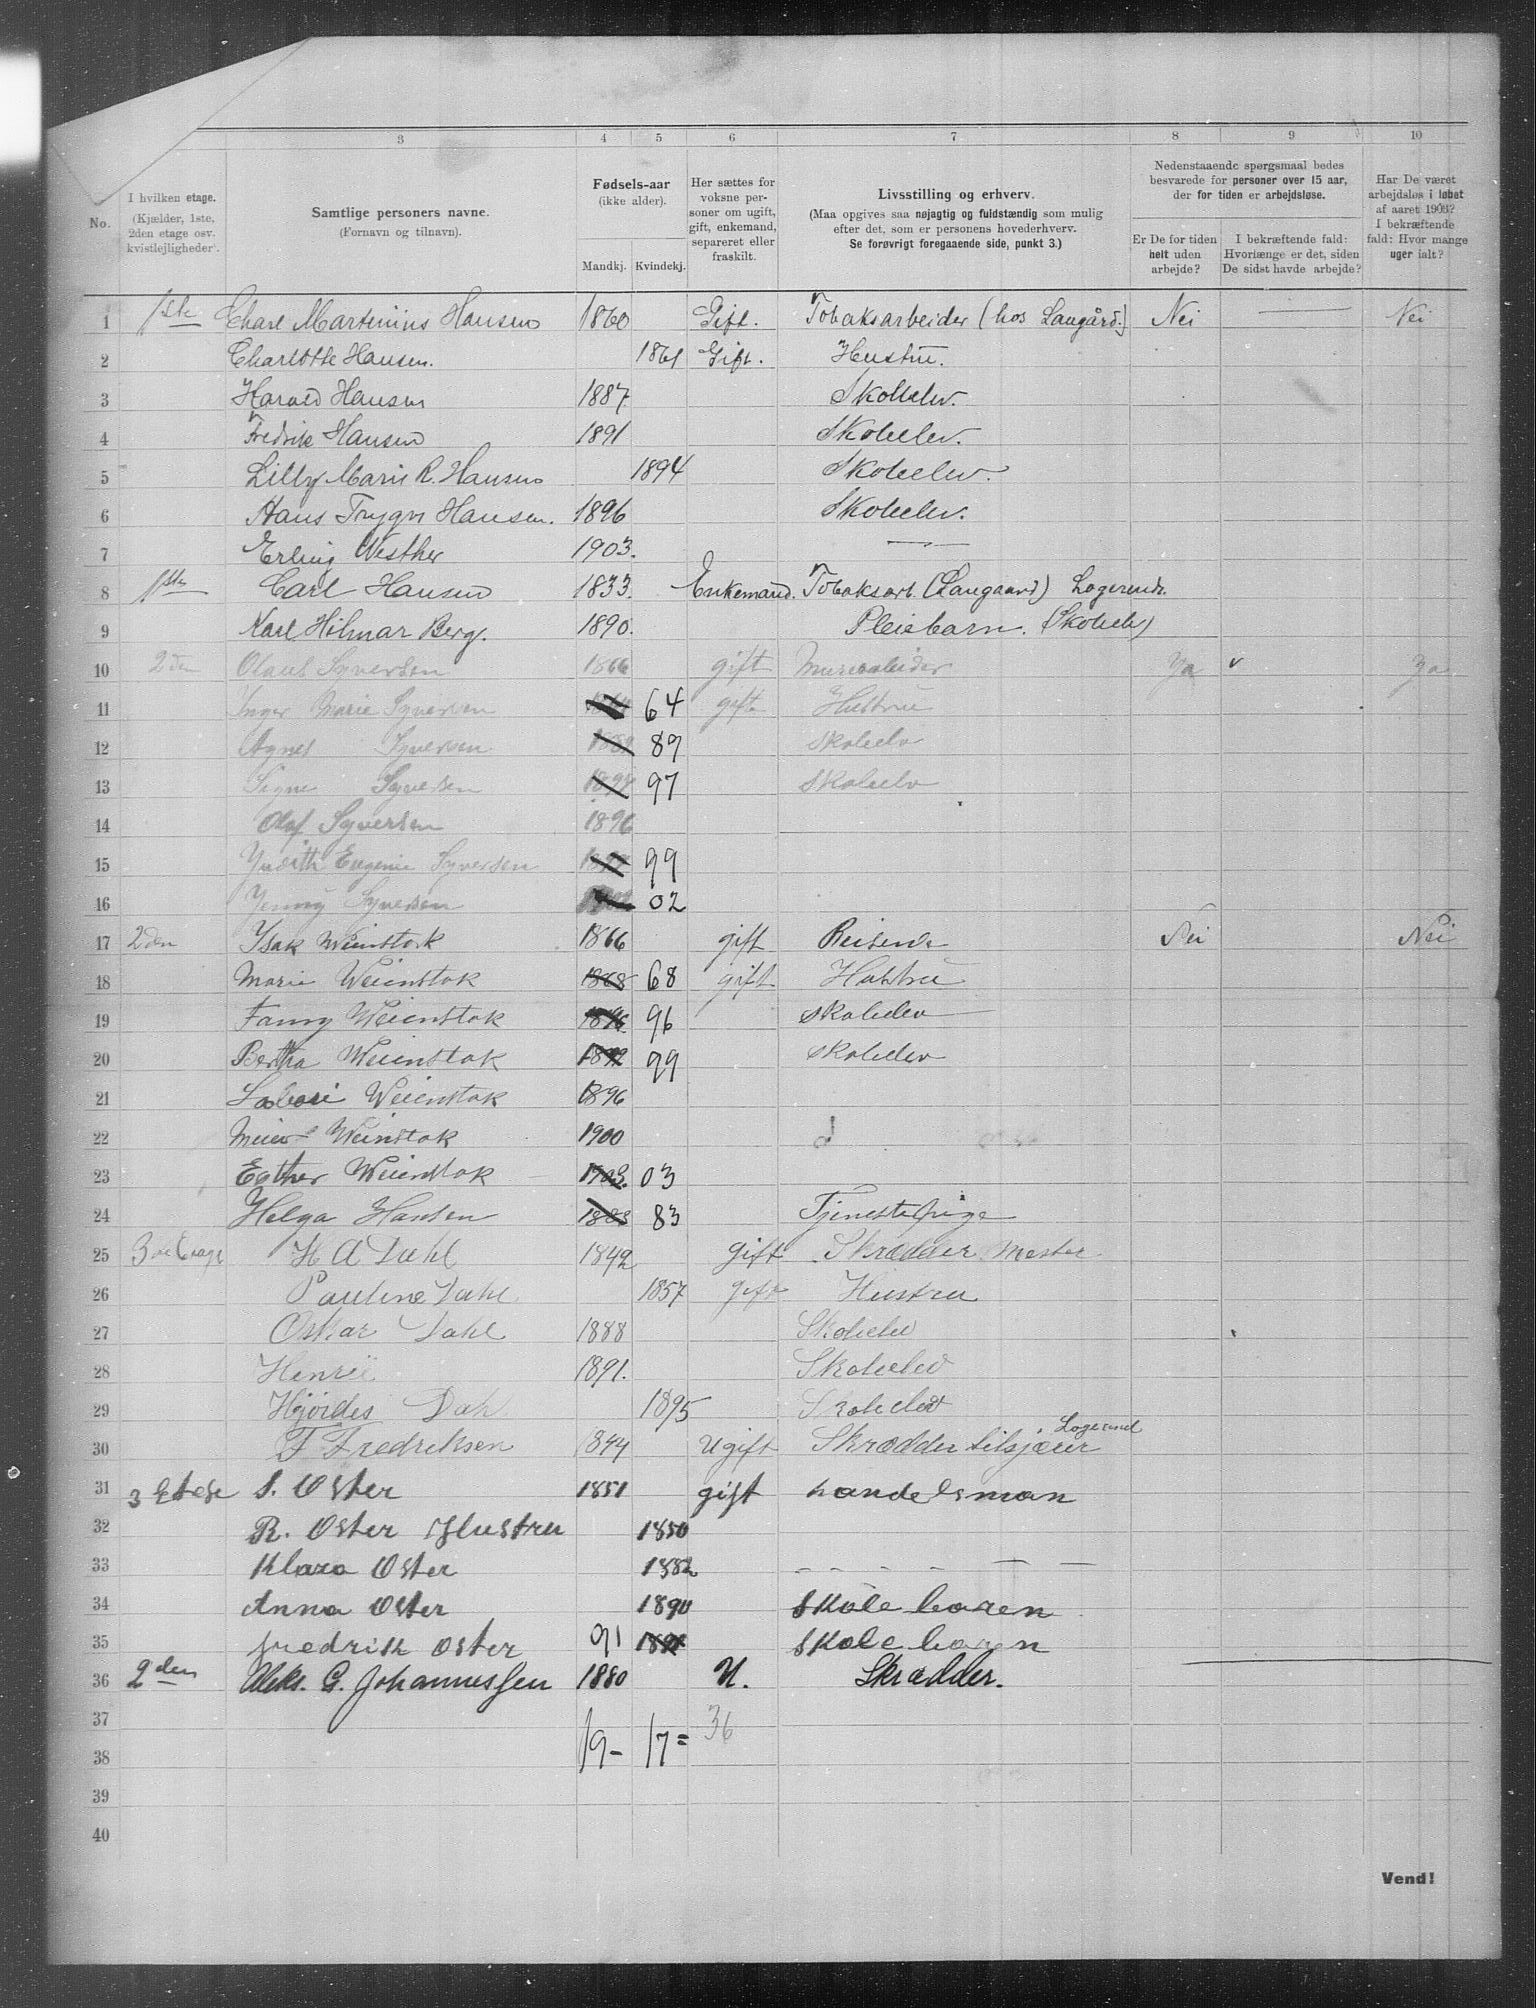 3 4 5 6 7 8 9 10
No.
I hvilken etage.
(Kjælder, 1ste,
2den etage osv.
kvistlejligheder).
Samtlige personers navne.
(Fornavn og tilnavn).
Fødsels-aar
(ikke alder).
Mandkj. Kvindekj.
Her sættes for
voksne per-
soner om ugift,
gift, enkemand,
separeret eller
fraskilt.
Livsstilling og erhverv.
(Maa opgives saa nøjagtig og fuldstændig som mulig
efter det, som er personens hovederhverv.
Se forøvrigt foregaaende side, punkt 3.)
Nedenstaaende spørgsmaal bedes
besvarede for personer over 15 aar,
der for tiden er arbejdsløse.
Er De for tiden
helt uden
arbejde?
I bekræftende fald:
Hvorlænge er det, siden
De sidst havde arbejde?
Har De været
arbejdsløs i løbet
af aaret 1903?
I bekræftende
fald: Hvor mange
uger ialt?
1 1ste Charl Martinius Hansen 1860 Gift. Tobaksarbeider (hos Laugård.) Nei — Nei
2 Charlotte Hansen. 1861 Gift. Hustru.
3 Harald Hansen 1887 Skolelev.
4 Fredrik Hansen 1891 Skolelev.
5 Lilly Marie R. Hansen 1894 Skolelev.
6 Hans Trygv Hansen. 1896 Skolelev.
7 Erling Westher 1903. —
8 1ste Carl Hansen 1833. Enkemand. Tobaksarb. (Laugaard) Logerende.
9 Karl Hilmar Berg. 1890. Pleiebarn. (Skolelev)
10 2den Olaus Syversen 1866 gift Murerarbeider Ja v Ja
11 Inger Marie Syversen 1864 64 gift Hustru
12 Agnes Syversen 1889 89 Skolelev
13 Signe Syversen 1897 97 Skolelev
14 Olaf Syversen 1896
15 Judith Eugenie Syversen 1899 99
16 Jenny Syversen 1902 02
17 2den Isak Weinstock 1866 gift Reisende Nei Nei
18 Marie Weienstok 1868 68 gift Hustru
19 Fanny Weienstok 1896 96 Skolelev
20 Bertha Weienstok 1899 99 Skolelev
21 Weienstok 1896
22 Meier Weinstok 1900
23 Esther Weienstok 1903. 03
24 Helga Hansen 1883 83 Tjenestepige
25 3die Etage H A Dahl 1842 gift Skrædder Mester
26 Pauline Dahl 1857 gift Hustru
27 Oskar Dahl 1888 Skolelev
28 Henrie 1891. Skolelev
29 Hjördis Dahl 1895 Skolelev
30 F Fredriksen 1844 Ugift Skrædder tilsjærer Logerend
31 3 Etage S. Oster 1851 gift handelsman
32 R. Oster Hustru 1850
33 Klara Oster 1882 - - - - — —
34 Anna Oster 1890 Skole baren
35 fredrik Oster 91 1891 Skole baren
36 2den Aleks. G. Johannessen 1880 U. Skrædder.
37
19 - 17 = 36
38
39
40
Vend!